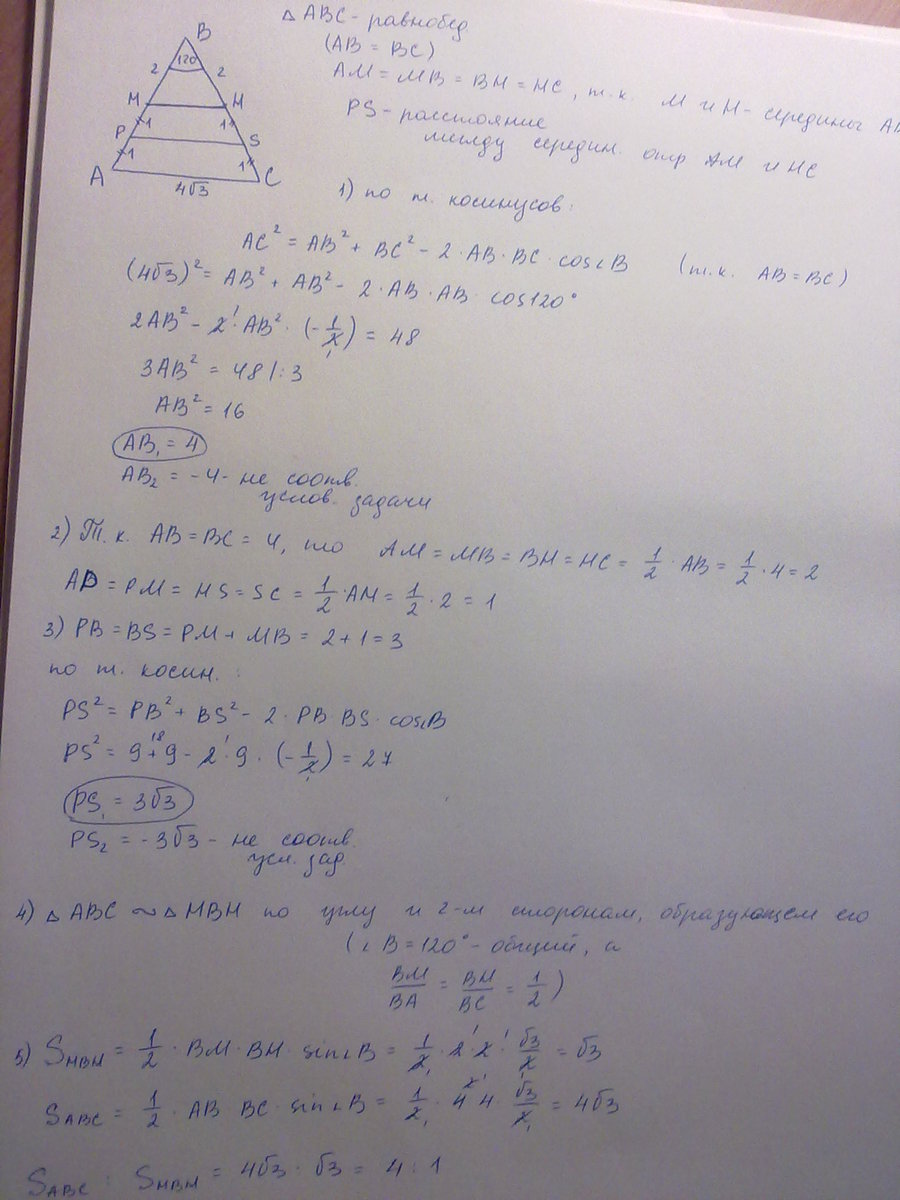 △ ABC - равнобед.
(AB = BC)
AM = MB = BH = HC, т.к. M и H - середины AB
PS - расстояние
между середин. отр AM и HC
B
120
2
2
M
H
1
1
P
S
1
1
A
C
4√3
1) по т. косинусов:
AC² = AB² + BC² - 2 · AB · BC · cos∠B (т.к. AB = BC)
(4√3)² = AB² + AB² - 2 · AB · AB · cos120°
2AB² - 2 · AB² · (-1/2) = 48
3AB² = 48 |: 3
AB² = 16
AB₁ = 4
AB₂ = -4 - не соотв.
услов. задачи
2) Т. к. AB = BC = 4, то AM = MB = BH = HC = 1/2 · AB = 1/2 · 4 = 2
AP = PM = HS = SC = 1/2 · AM = 1/2 · 2 = 1
3) PB = BS = PM + MB = 2 + 1 = 3
по т. косин. :
PS² = PB² + BS² - 2 · PB · BS · cos∠B
PS² = 9 + 9 - 2 · 9 · (-1/2) = 27
PS₁ = 3√3
PS₂ = -3√3 - не соотв.
усл. зад.
4) △ ABC ~ △ MBH по углу и 2-м сторонам, образующем его
(∠B = 120° - общий, а
BM/BA = BH/BC = 1/2)
5) S MBH = 1/2 · BM · BH · sin∠B = 1/2 · 2 · 2 · √3/2 = √3
S ABC = 1/2 · AB · BC · sin∠B = 1/2 · 4 · 4 · √3/2 = 4√3
S ABC : S MBH = 4√3 : √3 = 4 : 1